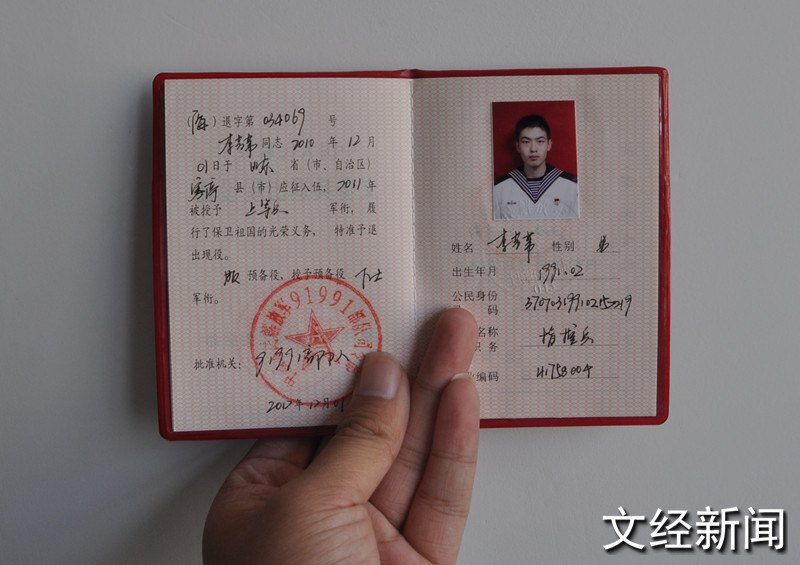 (海) 退字第 034069 号
同志 2010 年 12 月
01 日于 山东 省 (市、自治区)
县 (市) 应征入伍, 2011 年
被授予 上等兵 军衔, 履
行了保卫祖国的光荣义务, 特准予退
出现役。
服 预备役, 授予预备役 下士
军衔。
批准机关: 91991部队
2012年12月01
91991部队
姓名 性别 男
出生年月 1991.02
公民身份
码
名称
职务
编码
文经新闻